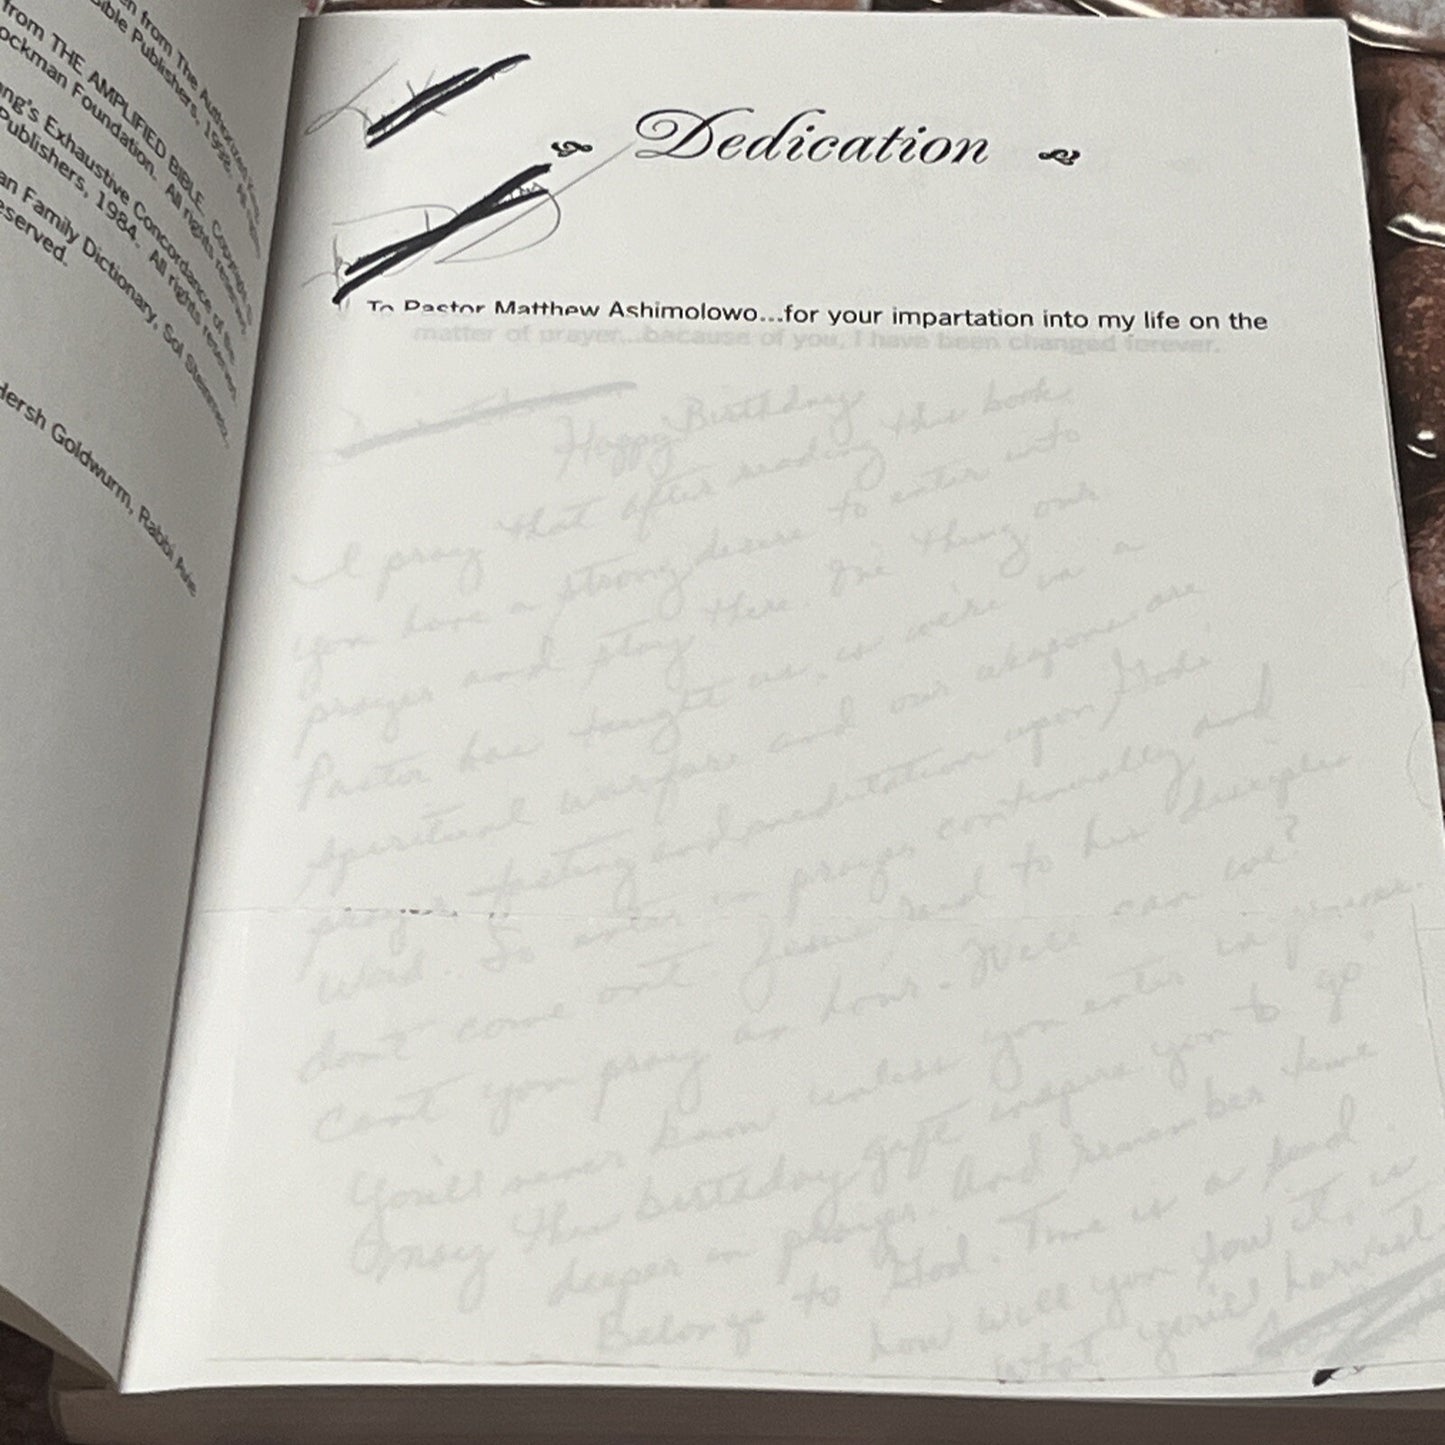 from The Authorized King
Bible Publishers, 1998. All rights
from THE AMPLIFIED BIBLE. Copyright
ockman Foundation. All rights reserved.
ong's Exhaustive Concordance of the
Publishers, 1984. All rights reserved.
an Family Dictionary, Sol
eserved.
Hersh Goldwurm, Rabbi
Dedication
To Pastor Matthew Ashimolowo...for your impartation into my life on the
matter of prayer...because of you, I have been changed forever.
Happy Birthday
I pray that after reading this book
you have a strong desire to enter into
prayer and stay there. One thing our
Pastor has taught us, is we're in a
spiritual warfare and our weapons are
prayer fasting and meditation upon God's
Word. So enter in prayer continually and
don't come out. Jesus said to his disciples
can't you pray an hour. Well can we?
You'll never know unless you enter in
may this birthday gift inspire you to go
deeper in prayer. And remember time
Belongs to God. Time is a seed.
how will you sow it, is
what you'll harvest